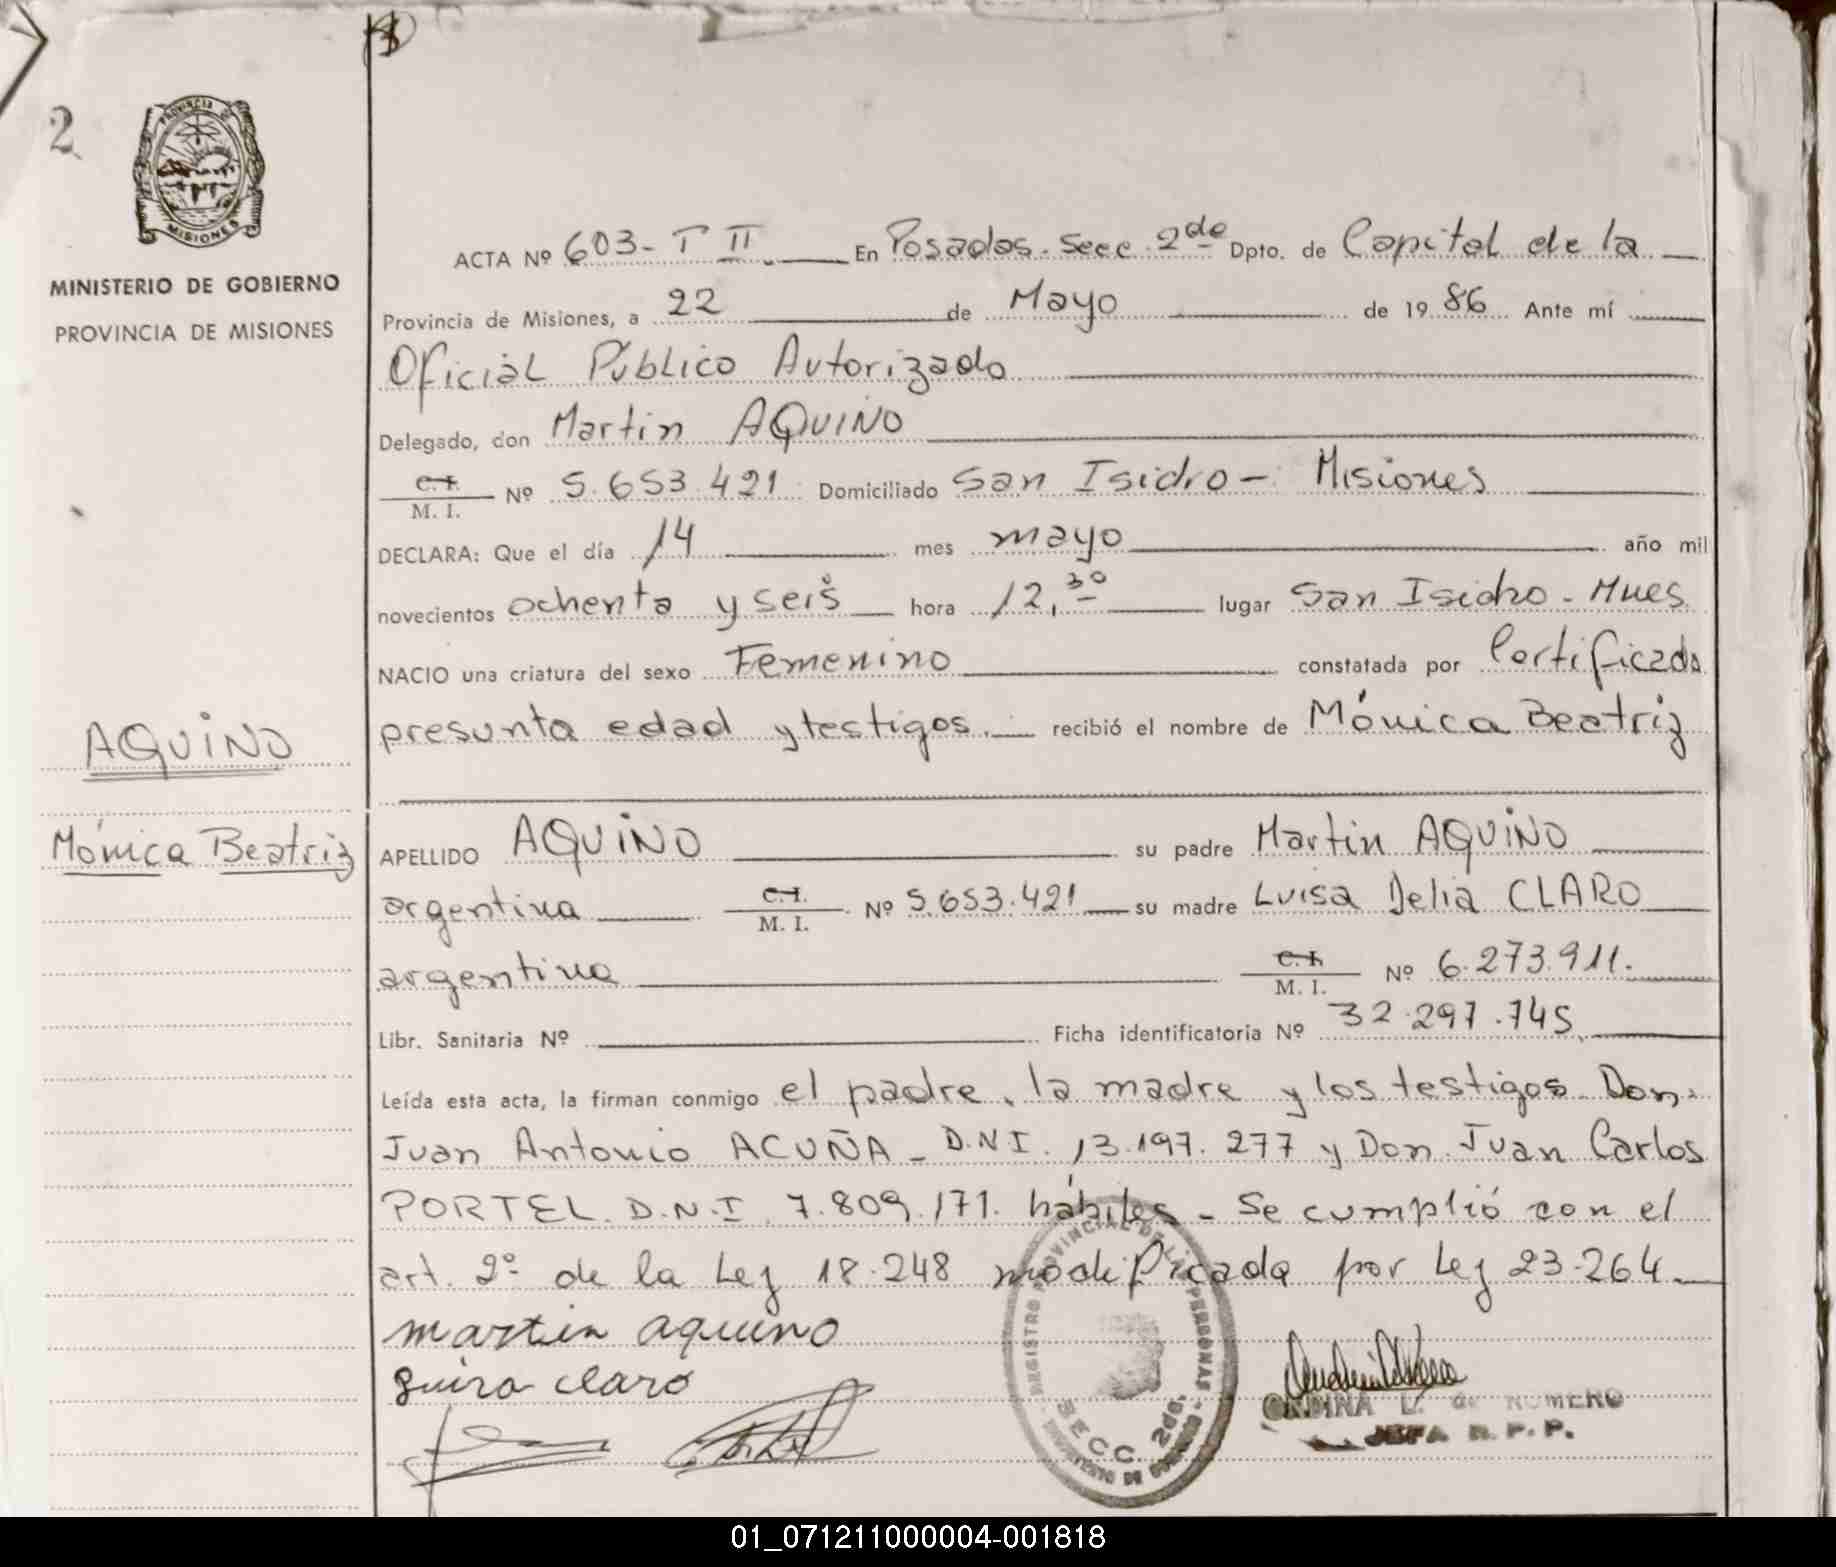 2
PROVINCIA DE
MISIONES
MINISTERIO DE GOBIERNO
PROVINCIA DE MISIONES
AQUINO
Mónica Beatriz
ACTA Nº 603 - T II En Posadas. Secc. 2da Dpto. de Capital de la
Provincia de Misiones, a 22 de Mayo de 19 86 Ante mí
Oficial Público Autorizado
Delegado, don Martin AQUINO
C.I.
M. I.
Nº 5.653.421 Domiciliado San Isidro - Misiones
DECLARA: Que el día 14 mes mayo año mil
novecientos ochenta y seis hora 12,30 lugar San Isidro - Mnes
NACIO una criatura del sexo Femenino constatada por Certificado
presunta edad y testigos. recibió el nombre de Mónica Beatriz
APELLIDO AQUINO su padre Martin AQUINO
argentina C.I. M. I. Nº 5.653.421 su madre Luisa Delia CLARO
argentina C.I. M. I. Nº 6.273.911.
Libr. Sanitaria Nº Ficha identificatoria Nº 32.297.745
Leída esta acta, la firman conmigo el padre, la madre y los testigos Don
Juan Antonio ACUÑA - D.N.I. 13.197.277 y Don Juan Carlos
PORTEL. D.N.I. 7.809.171. hábiles - Se cumplió con el
art. 2º de la Ley 18.248 modificada por Ley 23.264
martin aquino
claro
REGISTRO PROVINCIAL DE LAS PERSONAS
SECC. 2da.
MINISTERIO DE GOBIERNO
ONDINA L. de ROMERO
JEFA R. P. P.
01_071211000004-001818